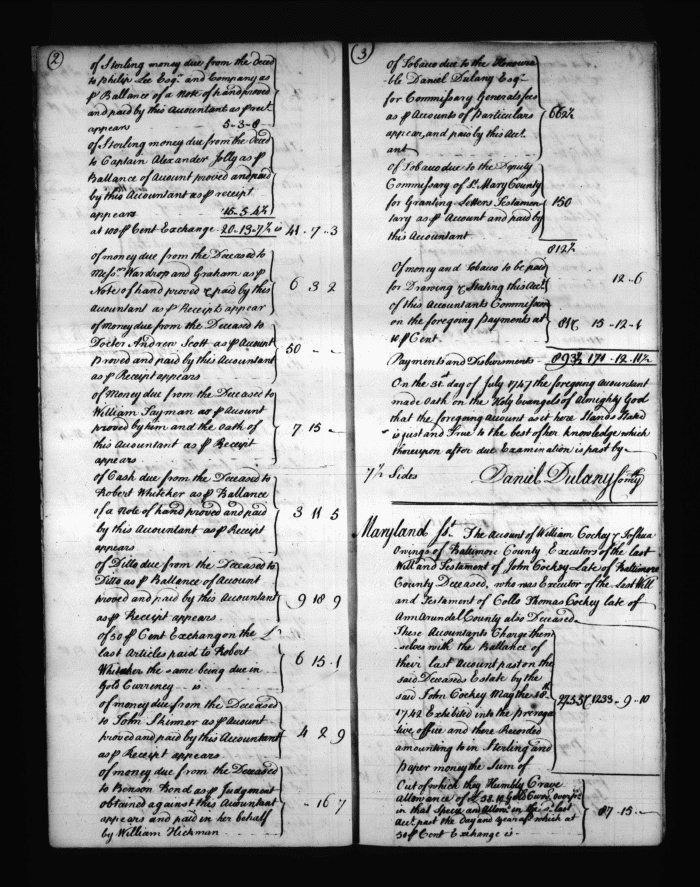 (2)
of Sterling money due from the Deced
to Philip Lee Esqr. and Company as
⅌ Ballance of a Note of hand proved
and paid by this Accountant as ⅌ rect.
appears 5-3-0
of Sterling money due from the Deced
to Captain Alexander Jolly as ⅌
Ballance of Account proved and paid
by this Accountant as ⅌ receipt
appears 15-5-4½
at 100 ⅌ Cent Exchange 20-13-7½ is 41-7-3
of money due from the Deceased to
Messrs. Wardrop and Graham as ⅌
Note of hand proved & paid by this
Accountant as ⅌ Receipt appear 6 3 2
of money due from the Deceased to
Doctor Andrew Scott as ⅌ Account
proved and paid by this Accountant
as ⅌ Receipt appears 50 - -
of Money due from the Deceased to
William Tayman as ⅌ Account
proved by him and the Oath of
this Accountant as ⅌ Receipt
appears 7 15 -
of Cash due from the Deceased to
Robert Whiteher as ⅌ Ballance
of a note of hand proved and paid
by this Accountant as ⅌ Receipt
appears 3 11 5
of Ditto due from the Deceased to
Ditto as ⅌ Ballance of Account
proved and paid by this Accountant
as ⅌ Receipt appears 9 18 9
of 50 ⅌ Cent Exchange on the 2
last Articles paid to Robert
Whiteher the same being due in
Gold Currency is 6 15 1
of money due from the Deceased
to John Skinner as ⅌ Account
proved and paid by this Accountant
as ⅌ Receipt appears 4 2 9
of money due from the Deceased
to Benson Bond as ⅌ Judgement
obtained against this Accountant
appears and paid in her behalf
by William Hickman - 16 7
(3)
of Tobacco due to the Honoura
ble Daniel Dulany Esqr.
for Commissary Generals fees
as ⅌ Accounts of Particulars
appear, and paid by this Acct.
ant 662½
of Tobacco due to the Deputy
Commissary of St. Mary County
for Granting Letters Testamen
tary as ⅌ Account and paid by
this Accountant 150
812½
Of money and Tobacco to be paid
for Drawing & Stating this Acct. 12-6
of this Accountants Commission
on the foregoing Payments at
10 ⅌ Cent. 81¼ 15-12-1
Payments and Disbursments 893¾ 171-12-11½
On the 31st. day of July 1747 the foregoing accountant
made Oath on the Holy Evangels of Almighty God
that the foregoing account as it here Stands Stated
is just and True to the best of her knowledge which
thereupon after due Examination is past by
7½ Sides Daniel Dulany Comry
Maryland sst. The Account of William Cockey & Joshua
Owings of Baltimore County Executors of the last
Will and Testament of John Cockey Late of Baltimore
County Deceased, who was Executor of the Last Will
and Testament of Collo Thomas Cockey late of
Ann Arundel County also Deceased
These Accountants Charge them
selves with the Ballance of
their last Account past on the
said Deceaseds Estate by the
said John Cockey May the 10th.
1742 Exhibited into the preroga
tive office and there Recorded
amounting to in Sterling and
paper money the Sum of 1233-9-10
Out of which they Humbly Crave
allowance of
in that Specie an Allowe. in the sd. last
Acct. past the day and year afsd which at
50 ⅌ Cent Exchange is 87-15-